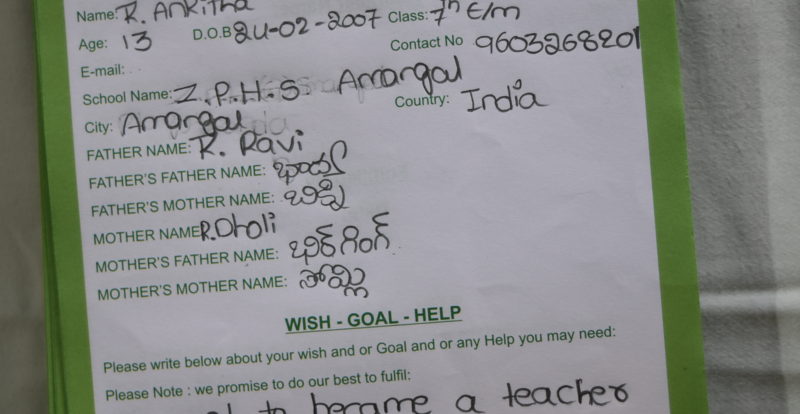 Name: R. Ankitha
Age: 13 D.O.B 24-02-2007 Class: 7th E/m
Contact No 9603268201
E-mail:
School Name: Z.P.H.S. Arrangal
City: Arrangal Country: India
FATHER NAME: R. Ravi
FATHER'S FATHER NAME:
FATHER'S MOTHER NAME: బిచ్చి
MOTHER NAME R.Dholi
MOTHER'S FATHER NAME: భిర్ గింగ్
MOTHER'S MOTHER NAME: సోమ్లి
WISH - GOAL - HELP
Please write below about your wish and or Goal and or any Help you may need:
Please Note : we promise to do our best to fulfil:
to became a teacher